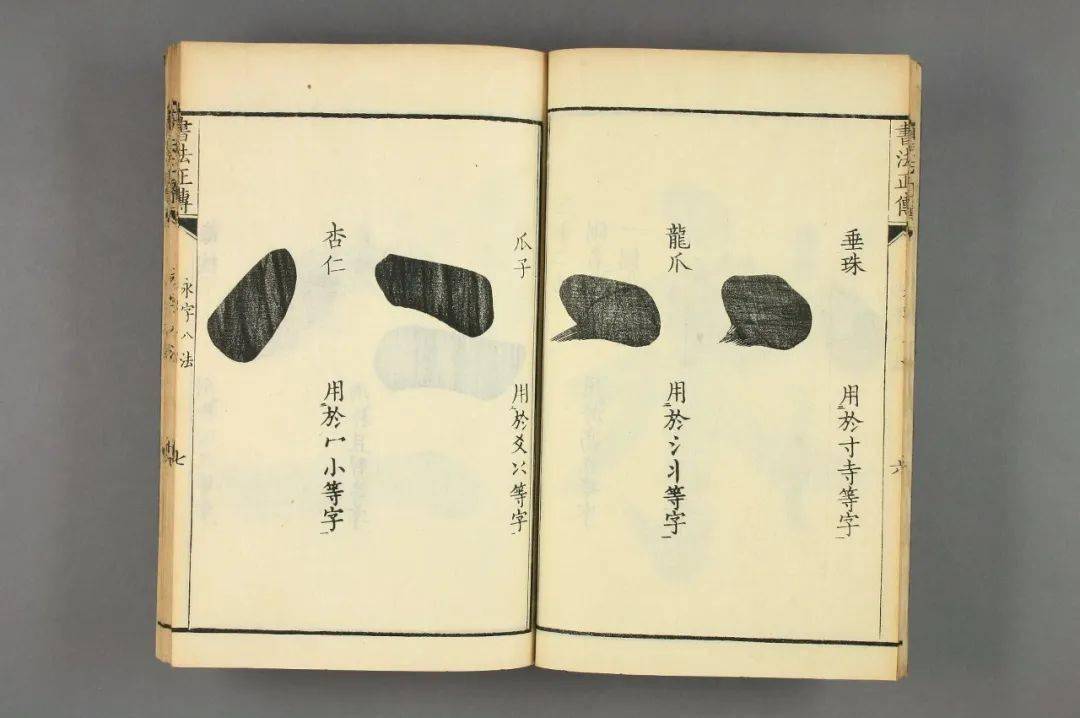 書法正傳
六
垂珠
用於寸寺等字
龍爪
用於氵丬等字
瓜子
用於爻㸚等字
杏仁
用於宀小等字
書法正傳
永字八法
七